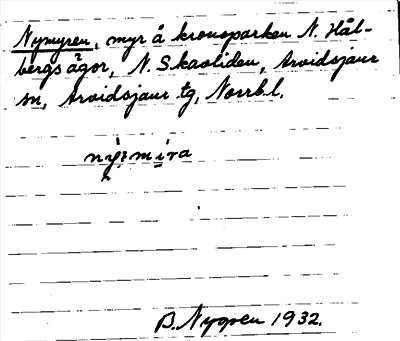 Nymyren, myr å kronoparken N. Hål-
bergsågor, N. Skaoliden, Arvidsjaur
sn, Arvidsjaur tg, Norrb.l.
B. Nygren 1932.